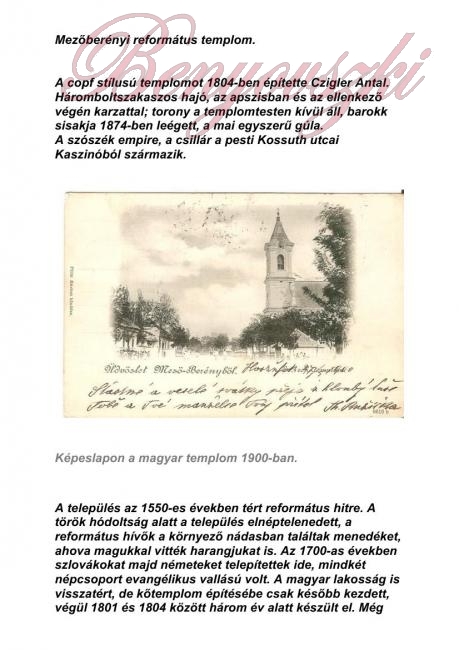 Benyovszki
Mezőberényi református templom.
A copf stílusú templomot 1804-ben építette Czigler Antal.
Háromboltszakaszos hajó, az apszisban és az ellenkező
végén karzattal; torony a templomtesten kívül áll, barokk
sisakja 1874-ben leégett, a mai egyszerű gúla.
A szószék empire, a csillár a pesti Kossuth utcai
Kaszinóból származik.
Üdvözlet Mező-Berényből.
Képeslapon a magyar templom 1900-ban.
A település az 1550-es években tért református hitre. A
török hódoltság alatt a település elnéptelenedett, a
református hívők a környező nádasban találtak menedéket,
ahova magukkal vitték harangjukat is. Az 1700-as években
szlovákokat majd németeket telepítettek ide, mindkét
népcsoport evangélikus vallású volt. A magyar lakosság is
visszatért, de kőtemplom építésébe csak később kezdett,
végül 1801 és 1804 között három év alatt készült el. Még